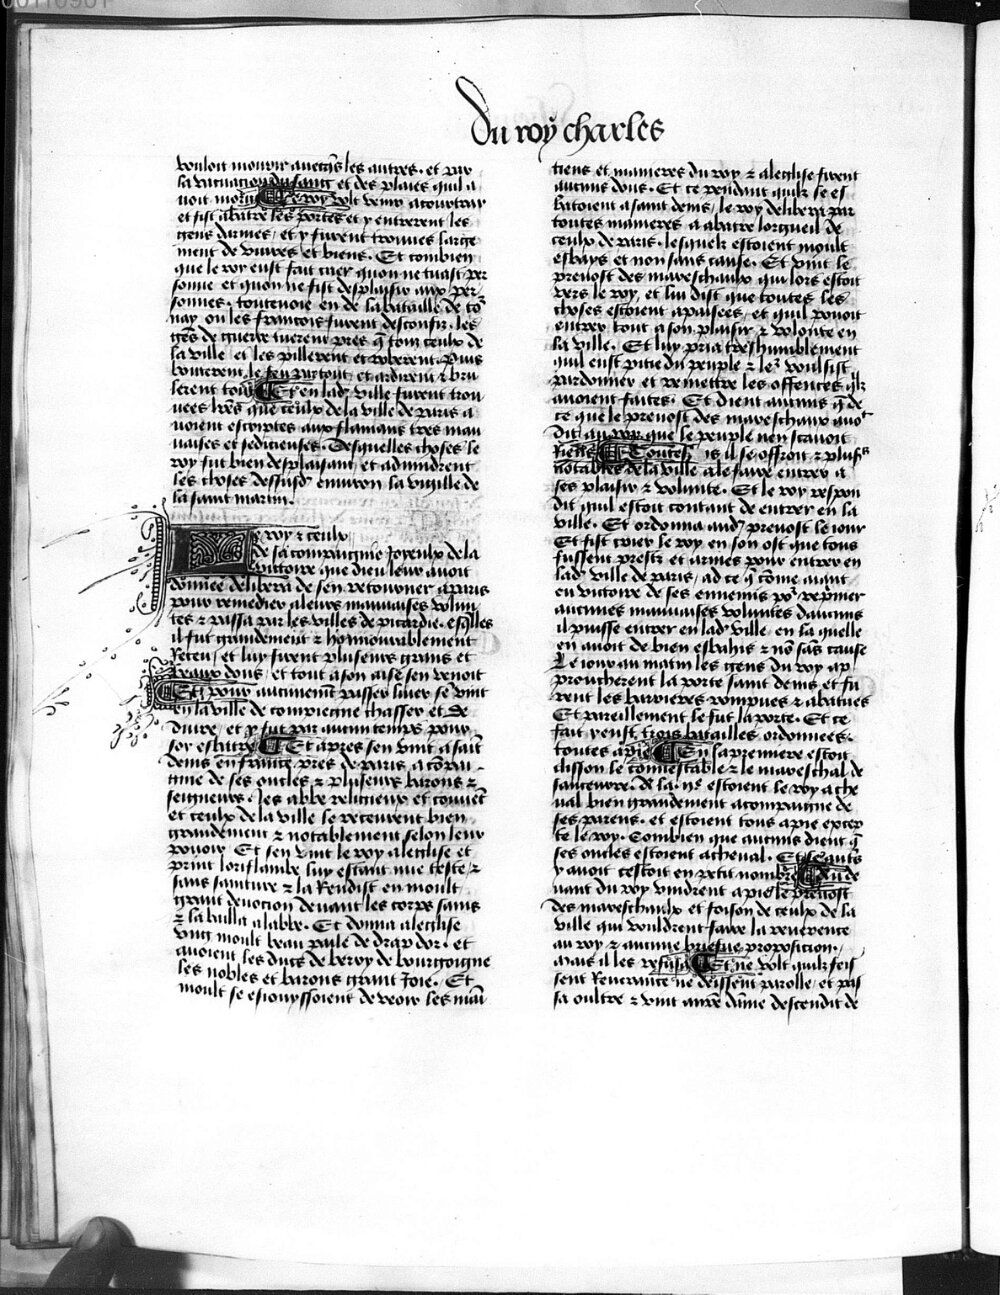 Du roy charles
vouloit mourir avecq̄s les autres. et par
la vuidange du sang et des plaies quil a
voit moru Le roy volt venir a courtray
et fist abatre les portes et y entrerent les
gens darmes, et y furent trouvés large
ment de vivres et biens. Et combien
que le roy eust fait crier quon ne tuast per
sonne et quon ne fist desplaisir aux per
sonnes. toutevoie en de la bataille de co
nay ou les francois furent desconfiz. les
gēs de guerre tuerent pres q̄ tom ceulx de
la ville et les pillerent et roberent. Puis
bouterent le feu partout et ardirent & bru
lerent tout Et en lad ville furent trou
vees lrēs que ceulx de la ville de paris a
voient escriptes aux flamans tres mau
vaises et sedicieuses. Desquelles choses le
roy fut bien desplaisant, et advindrent
les choses dessusd environ la vigille de
la saint martin.
Le roy & ceulx
de sa compaignie Joyeulx de la
victoire que dieu leur avoit
donnee delibera de sen retourner a paris
pour remedier a leurs mauvaises volun
tes & passa par les villes de picardie. esq̄lles
il fut grandement & honnourablement
Receu, et luy furent plusieurs grans et
beaux dons, et tout a son aise sen venoit
Et pour aucunemēt passer liver se vint
en la ville de compiegne chasser et De
duire, et y fut par aucun temps pour
soy esbatre Et apres sen vint a saīt
denis en france pres de paris, a cōpai
gnie de ses oncles & plusieurs barons &
seigneurs. les abbe religieux et couvēt
et ceulx de la ville le receurent bien
grandement & notablement selon leur
pouoir Et sen vint le roy a leglise et
print loriflambe luy estant nue teste &
sans sainture & la Rendist en moult
grant devocion devant les corps sains
& la bailla a labbe. Et donna a leglise
ung moult beau paile de drap dor. et
avoient les ducs de berry de bourgoingne
les nobles et barons grant Joie. Et
moult se esjouyssoient de veoir les mai
tiens et manieres du roy & a leglise firent
aucuns dons. Et ce pendant quilz se es
batoient a saint denis, le roy delibera par
toutes manieres a abatre lorgueil de
ceulx de paris. lesquelz estoient moult
esbays et non sans cause. Et vint le
prevost des mareschaux qui lors estoit
vers le roy, et lui dist que toutes les
choses estoient apaisees, et quil pouoit
entrer tout a son plaisir & volonte en
la ville. Et luy pria tres humblement
quil eust pitie du peuple & le voulsist
pardonner et remettre les offences q̄lz
avoient faites. Et dient aucuns q̄ de
ce que le prevost des mareschaux avoit
dit au roy que le peuple nen scavoit
riens Toutes is il se offroit & plusrs
notables de la ville a le faire entrer a
ses plaisir & volunte. Et le roy respon
dit quil estoit contant de entrer en la
ville. Et ordonna aud prevost le jour
Et fist crier le roy en son ost que tous
fussent prestz et armes pour entrer en
lad ville de paris, ad ce q̄ cōme aiant
eu victoire de ses ennemis po repriner
aucunes mauvaises voluntes daucuns
il puisse entrer en lad ville, en la quelle
en avoit de bien esbahis & nō sās cause
Le jour au matin les gens du roy ap
proucherent la porte saint denis et fu
rent les barrieres rompues & abatues
Et pareillement le fut la porte. Et ce
fait y eust trois batailles ordonnees.
toutes a pie En la premiere estoit
clisson le connestable & le mareschal de
sancerre. Et la estoient le roy a che
val bien grandement acompaigne de
ses parens. et estoient tous a pie excep
te le roy. Combien que aucuns dient q̄
ses oncles estoient a cheval. Et se autrs
y avoit cestoit en petit nombre Au de
vant du roy vindrent a pie le prevost
des mareschaulx et foison de ceulx de la
ville qui vouldrent faire la reverence
au roy & aucune briefue proposicion.
Mais il les refusa Et ne volt quilz feis
sent Reverance ne deissent parolle, et pas
sa oultre & vint a nr̄e dame descendit de